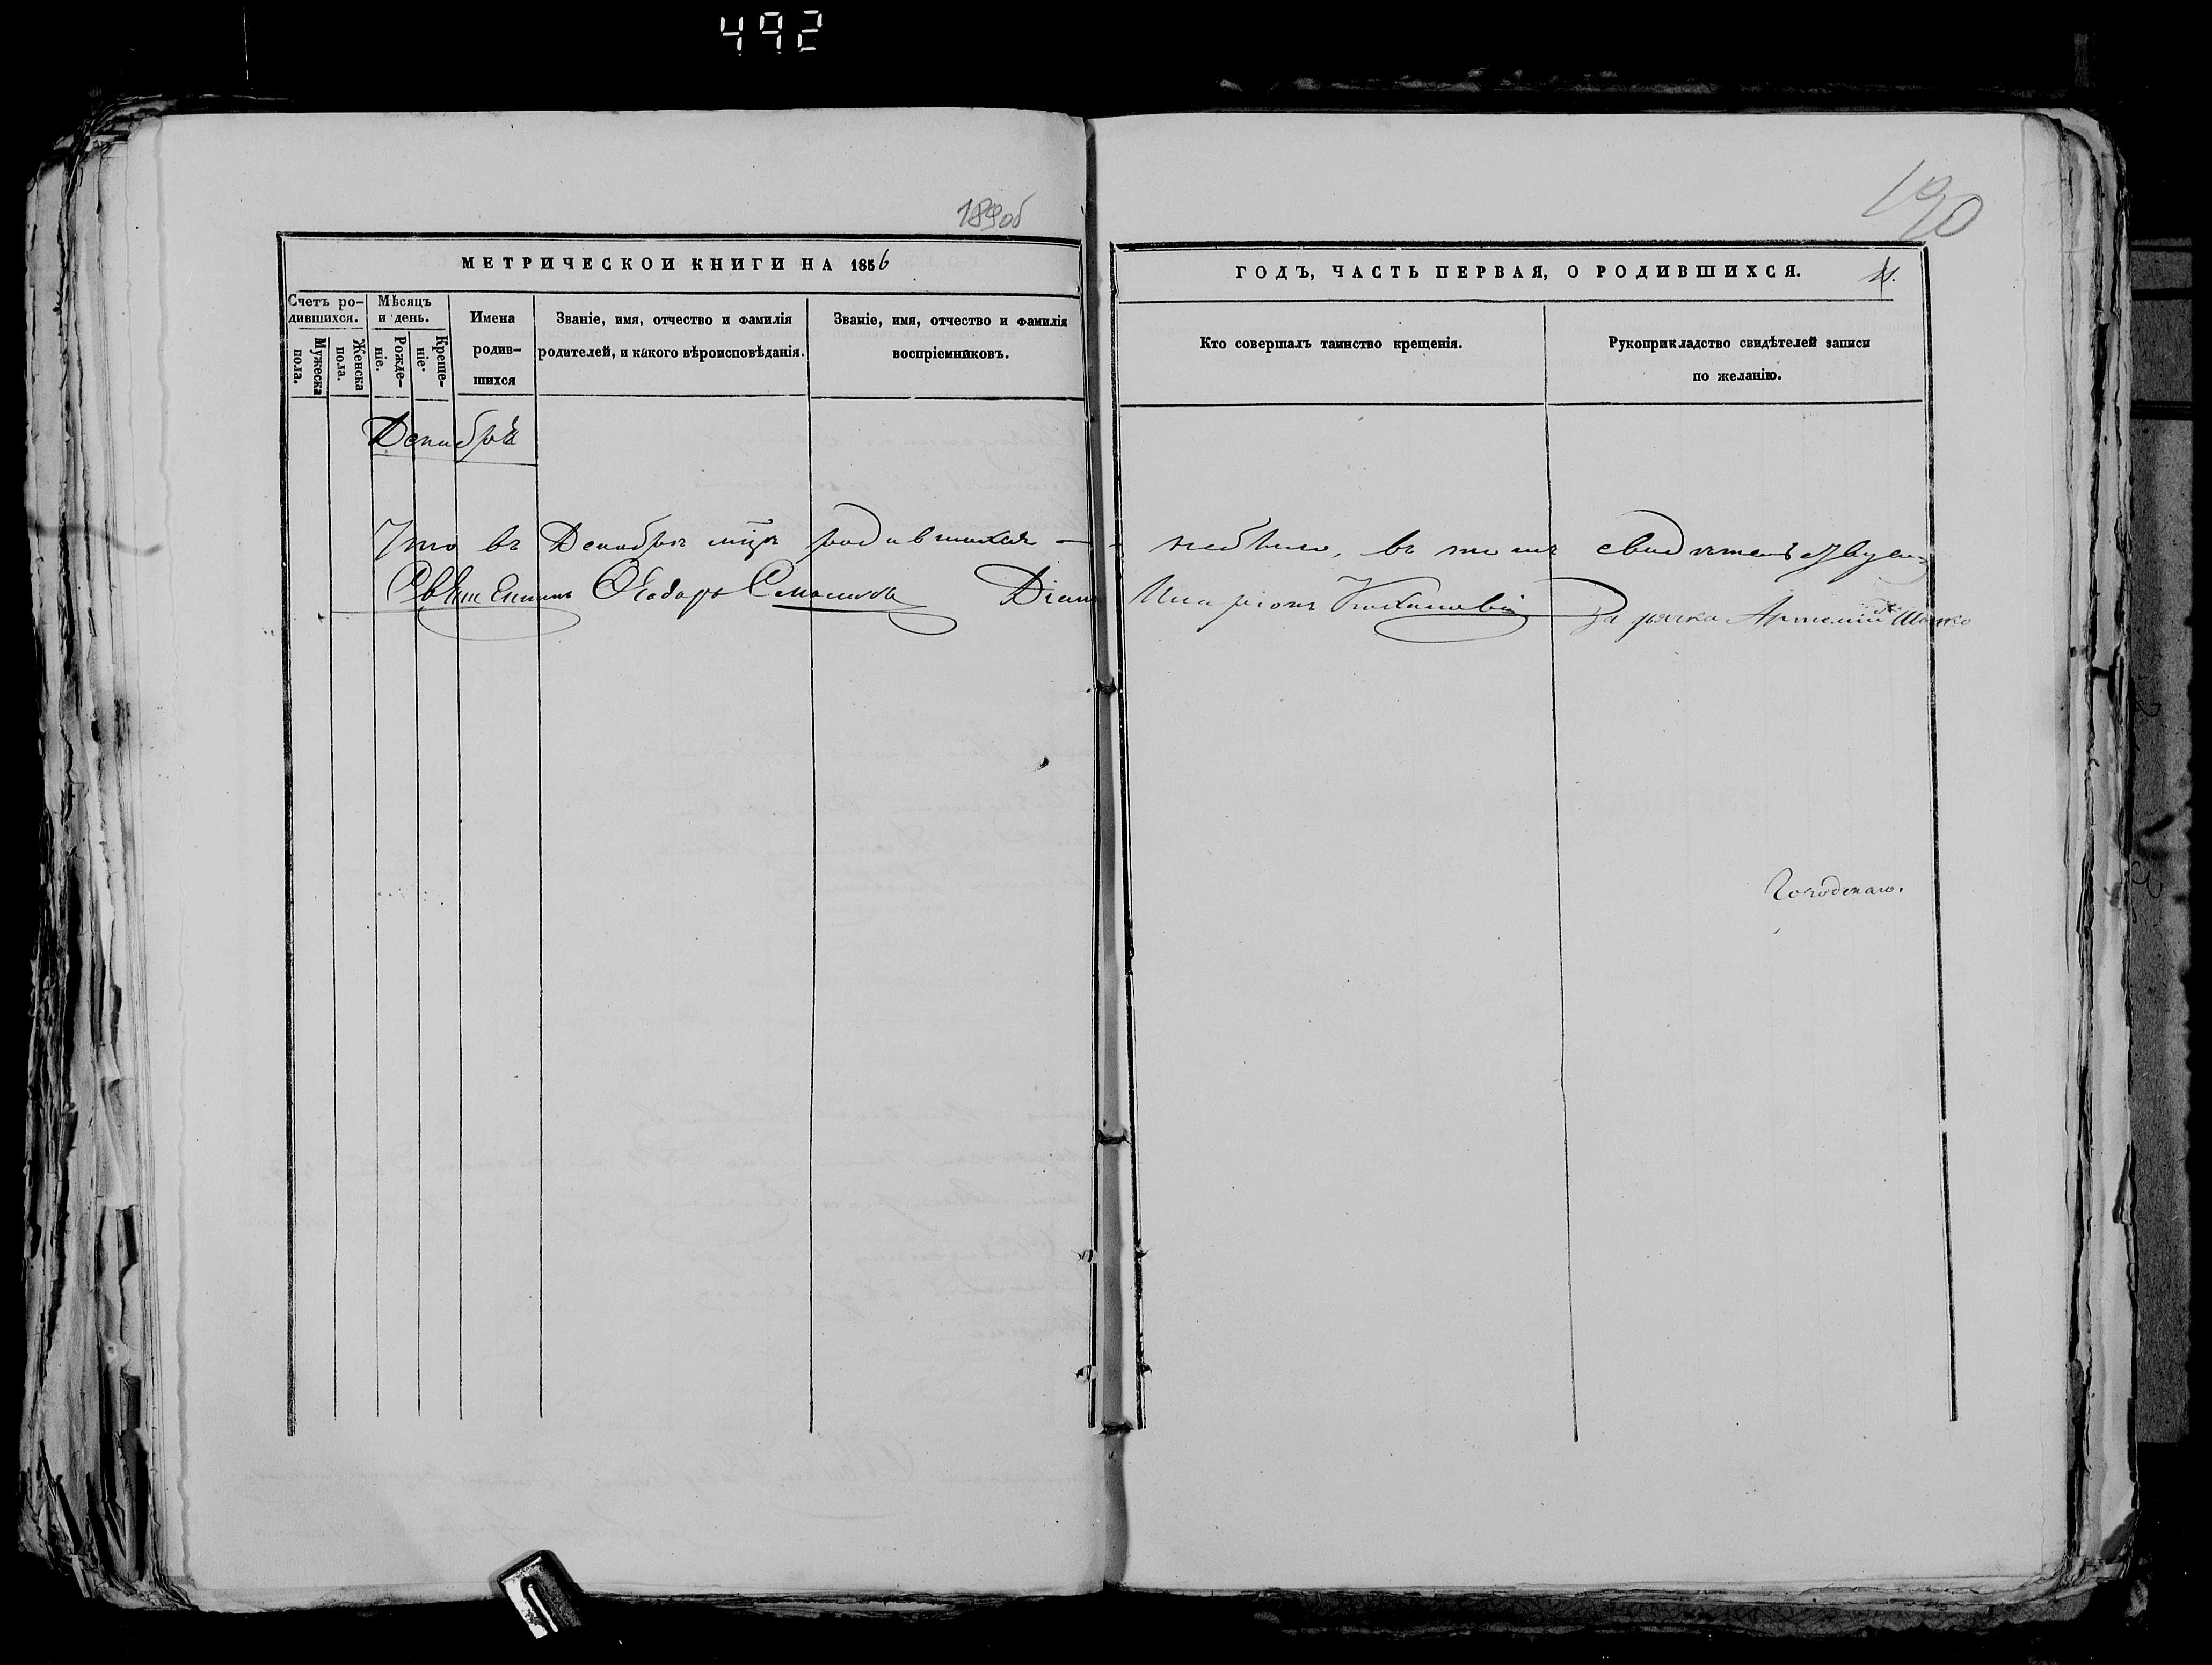 492
189об
190
МЕТРИЧЕСКОЙ КНИГИ НА 1856
ГОДЪ, ЧАСТЬ ПЕРВАЯ, О РОДИВШИХСЯ.
Счетъ ро-
дившихся.
Мужеска
пола.
Женска
пола.
Мѣсяцъ
и день.
Рожде-
ніе.
Креще-
ніе.
Имена
родив-
шихся
Званіе, имя, отчество и фамилія
родителей, и какого вѣроисповѣданія.
Званіе, имя, отчество и фамилія
воспріемниковъ.
Кто совершалъ таинство крещенія.
Рукоприкладство свидѣтелей записи
по желанію.
Декабрь
Что въ Декабрѣ мцѣ родившихся — небыло, въ томъ
Священникъ Ѳеодоръ
Иларіонъ
Артемій